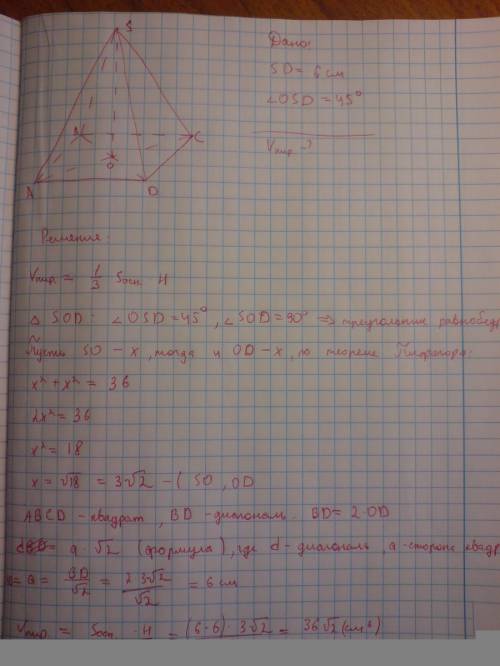 S
Дано:
SD = 6 см
∠OSD = 45°
Vпир - ?
C
O
A
D
Решение:
Vпир = 1/3 Sосн · H
△ SOD: ∠OSD = 45°, ∠SOD = 90° ⇒ треугольник равнобедр
Пусть SO - x, тогда и OD - x, по теореме Пифагора:
x² + x² = 36
2x² = 36
x² = 18
x = √18 = 3√2 - ( SO, OD
ABCD - квадрат, BD - диагональ. BD = 2·OD
d = a · √2 (формула), где d - диагональ, a - сторона квадр
a = BD/√2 = 2·3√2/√2 = 6 см
Vпир = Sосн · H = (6·6) · 3√2 = 36√2 (см³)